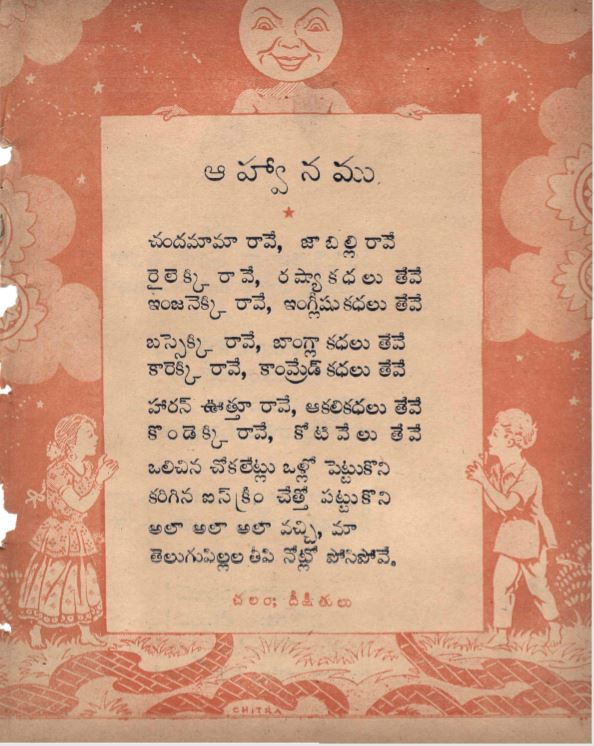 ఆహ్వానము.
చందమామా రావే, జాబిల్లి రావే
రైలెక్కి రావే, రష్యాకధలు తేవే
ఇంజనెక్కి రావే, ఇంగ్లీషుకధలు తేవే
బస్సెక్కి రావే, బాంగ్లా కధలు తేవే
కారెక్కి రావే, కాంమ్రేడ్ కధలు తేవే
హారన్ ఊత్తూ రావే, ఆకలికధలు తేవే
కొండెక్కి రావే, కోటి వేలు తేవే
ఒలిచిన చోకలేట్లు ఒళ్లో పెట్టుకొని
కరిగిన ఐస్‌క్రీం చేత్తో పట్టుకొని
అలా అలా అలా వచ్చి, మా
తెలుగుపిల్లల తీపి నోట్లో పోసిపోవే.
చలం; దీక్షితులు
CHITRA